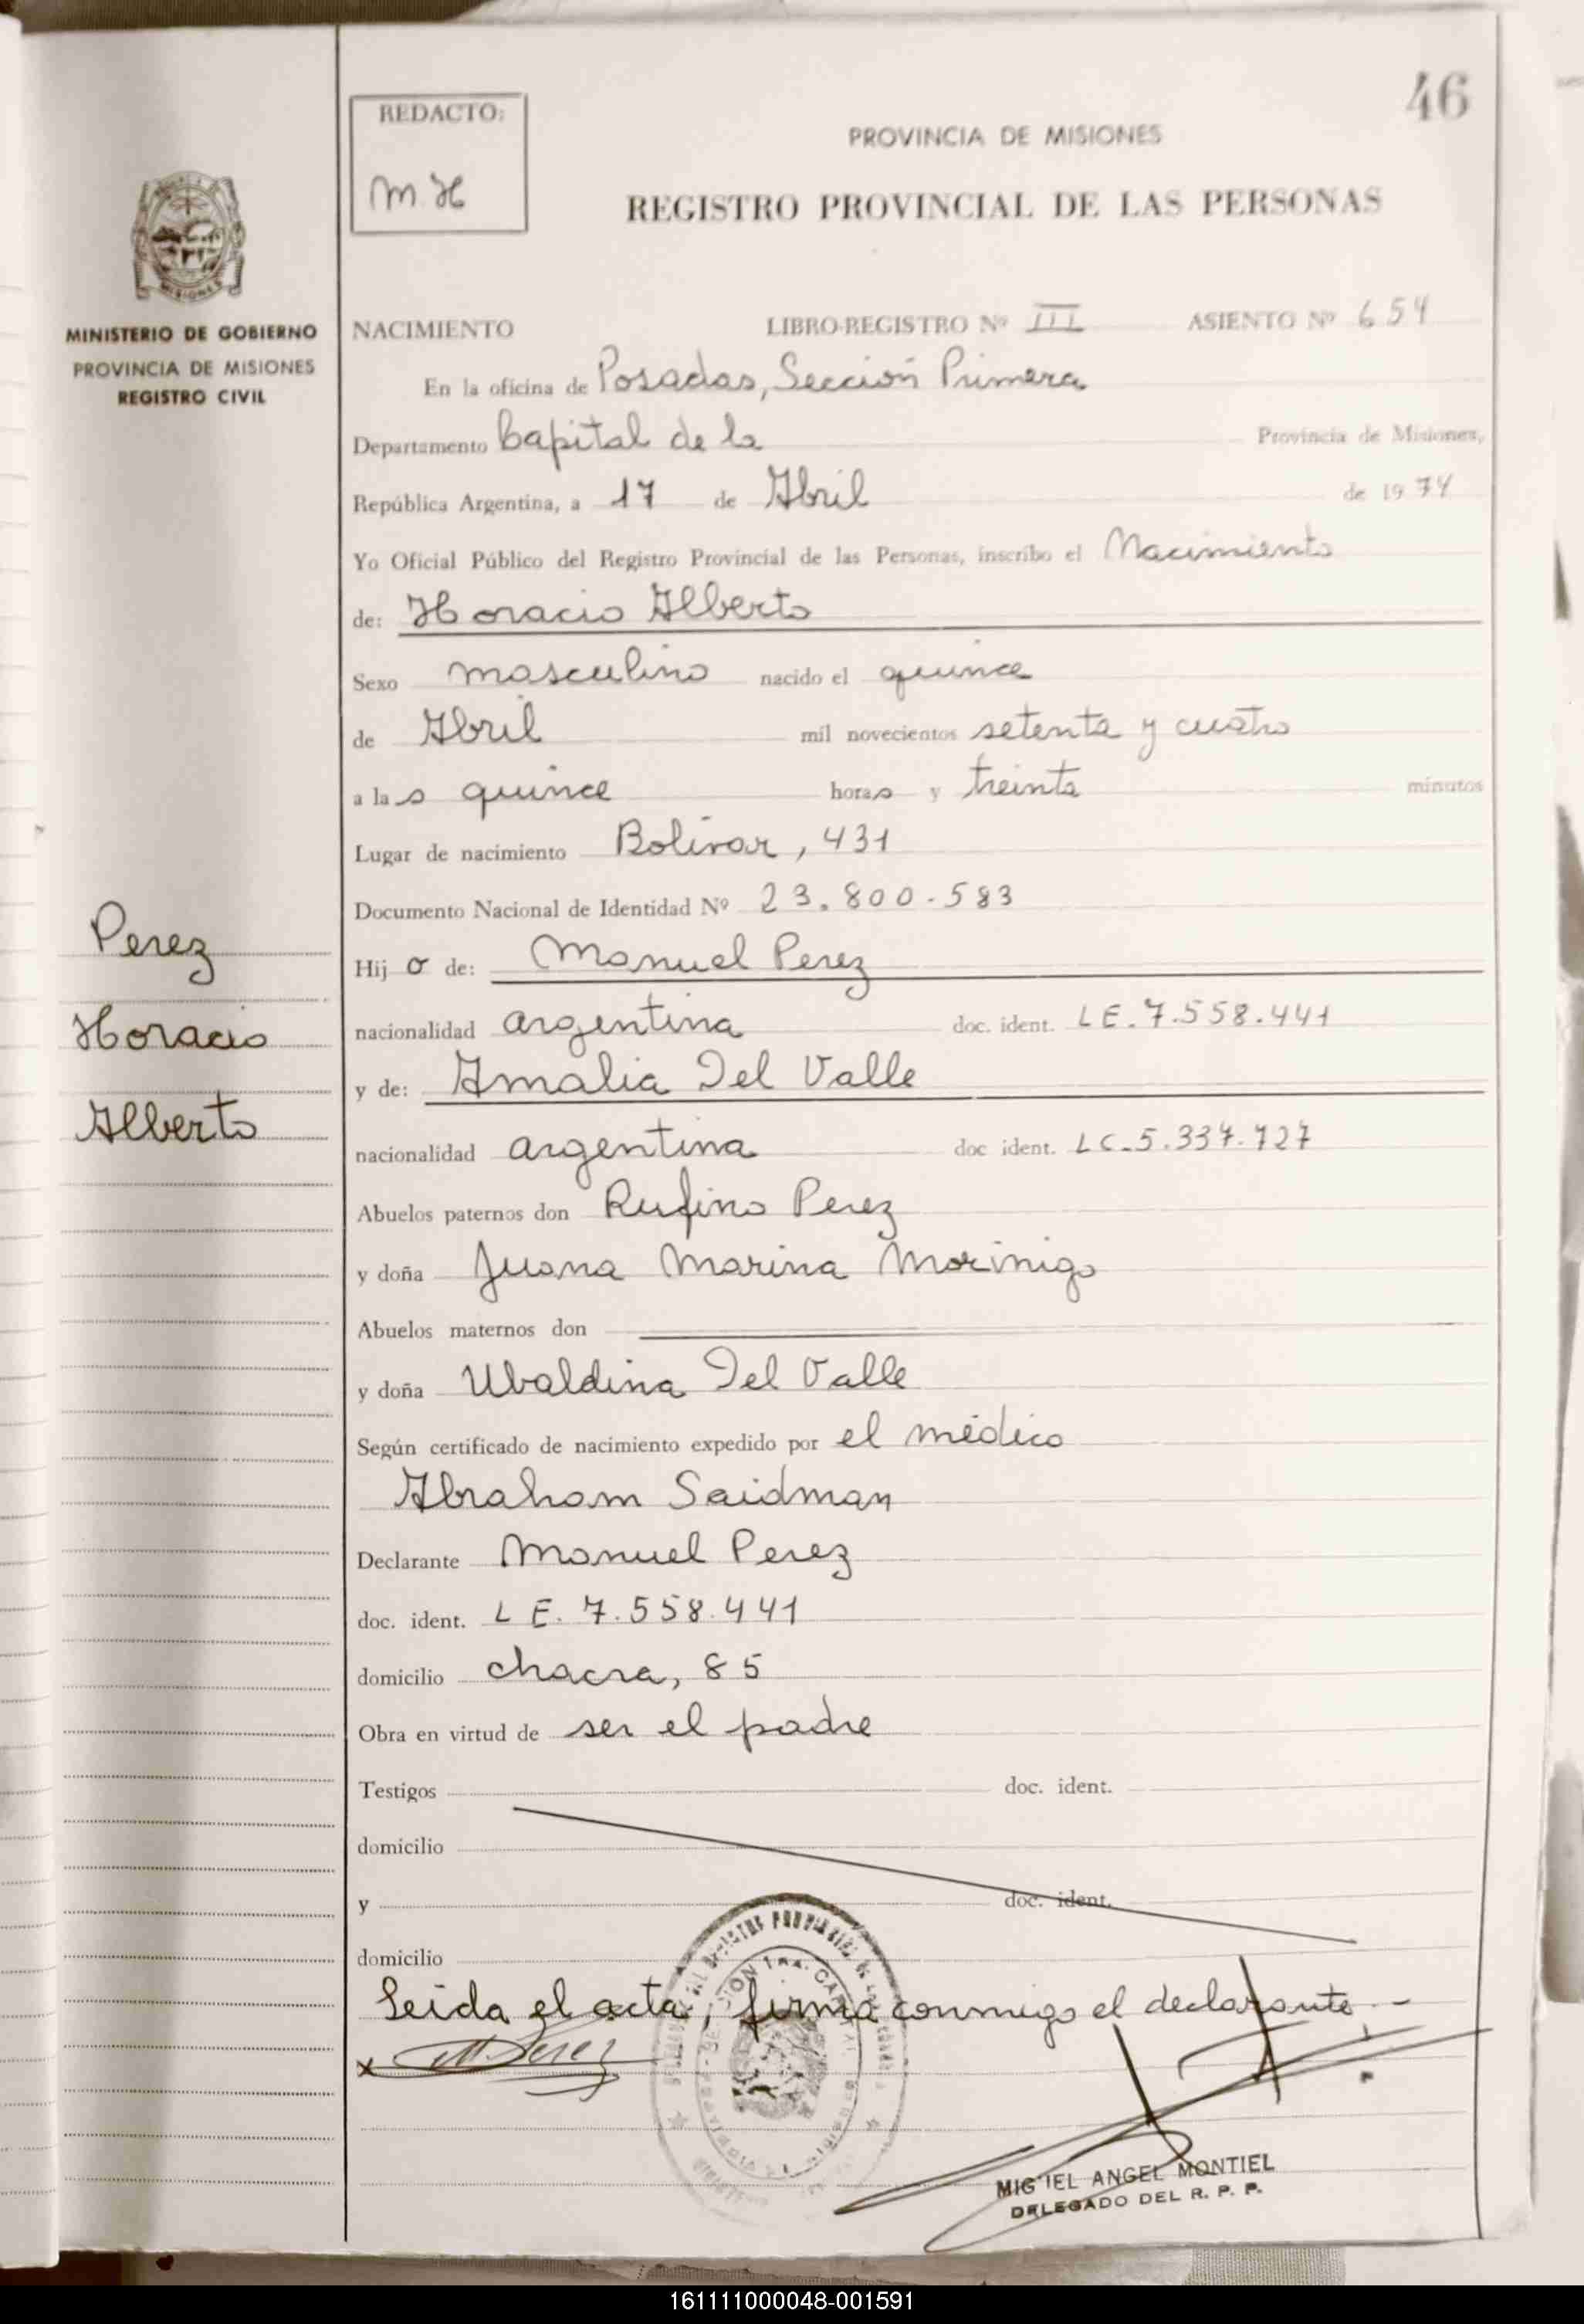 46
REDACTO:
M.H
PROVINCIA DE MISIONES
REGISTRO PROVINCIAL DE LAS PERSONAS
MISIONES
MINISTERIO DE GOBIERNO
PROVINCIA DE MISIONES
REGISTRO CIVIL
NACIMIENTO LIBRO-REGISTRO Nº III ASIENTO Nº 654
En la oficina de Posadas, Sección Primera
Departamento Capital de la Provincia de Misiones,
República Argentina, a 17 de Abril de 1974
Yo Oficial Público del Registro Provincial de las Personas, inscribo el Nacimiento
de: Horacio Alberto
Sexo masculino nacido el quince
de Abril mil novecientos setenta y cuatro
a las quince horas y treinta minutos
Lugar de nacimiento Bolívar, 431
Documento Nacional de Identidad Nº 23.800.583
Perez
Horacio
Alberto
Hijo de: Manuel Perez
nacionalidad argentina doc. ident. LE.7.558.441
y de: Amalia Del Valle
nacionalidad argentina doc ident. LC.5.337.727
Abuelos paternos don Rufino Perez
y doña Juana Marina Morinigo
Abuelos maternos don
y doña Ubaldina Del Valle
Según certificado de nacimiento expedido por el médico
Abraham Saidman
Declarante Manuel Perez
doc. ident. LE. 7.558.441
domicilio chacra, 85
Obra en virtud de ser el padre
Testigos doc. ident.
domicilio
y doc. ident.
domicilio
Leida el acta, firma conmigo el declarante.-
x M Perez
MIGUEL ANGEL MONTIEL
DELEGADO DEL R. P. P.
161111000048-001591